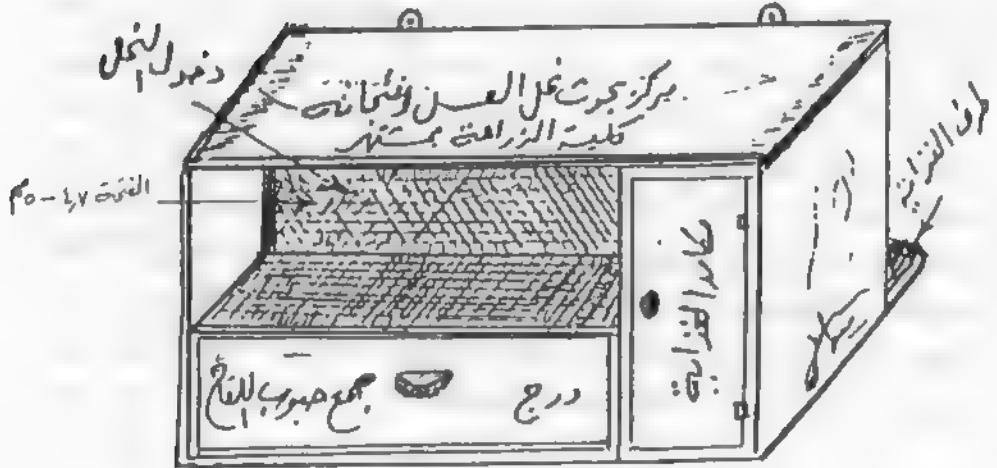 دخول النحل
مركز بحوث نحل العسل ومنتجاته
كلية الزراعة بمشتهر
الفتحة ٤,٧ - ٥ مم
طرف الغذاية
مكان الغذاية
درج
تجمع حبوب اللقاح